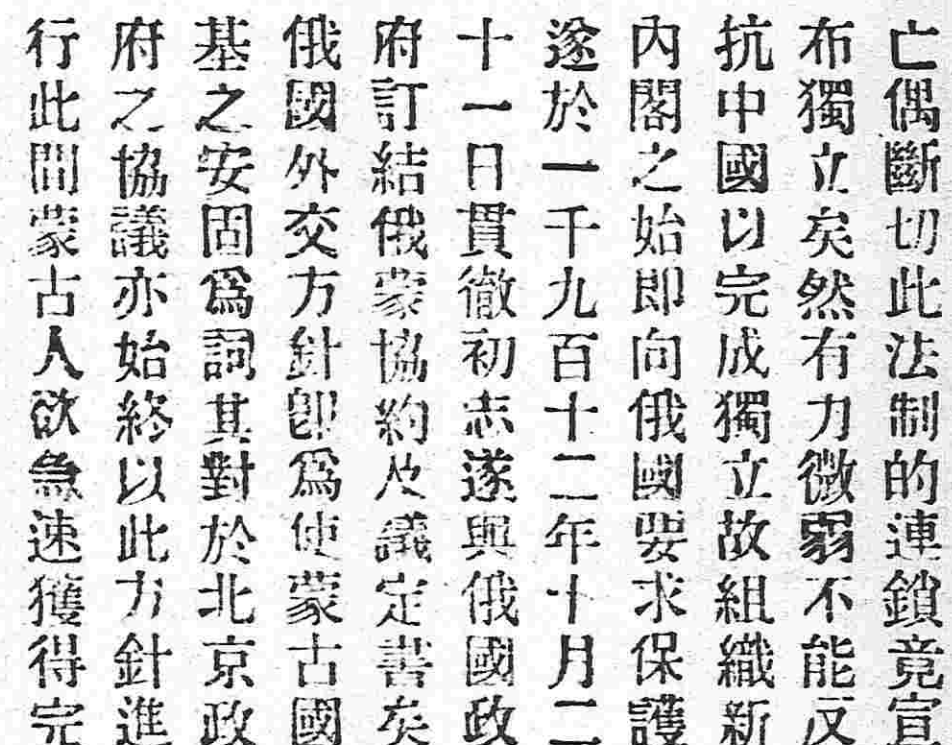 亡偶斷切此法制的連鎖竟宣
布獨立矣然有力微弱不能反
抗中國以完成獨立故組織新
內閣之始即向俄國要求保護
遂於一千九百十二年十月二
十一日貫徹初志遂與俄國政
府訂結俄蒙協約及議定書矣
俄國外交方針卽爲使蒙古國
基之安固爲詞其對於北京政
府之協議亦始終以此方針進
行此間蒙古人欲急速獲得完